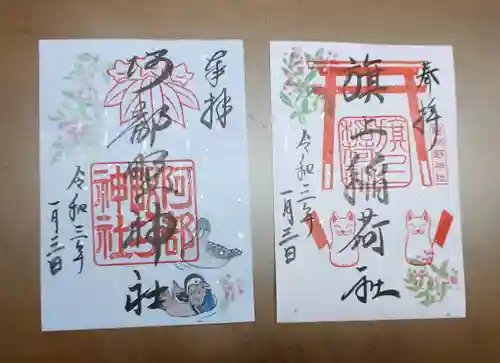 奉拝
阿部野神社
阿部野神社
令和三年
一月三日
奉拝
旗上稲荷社
令和三年
一月三日